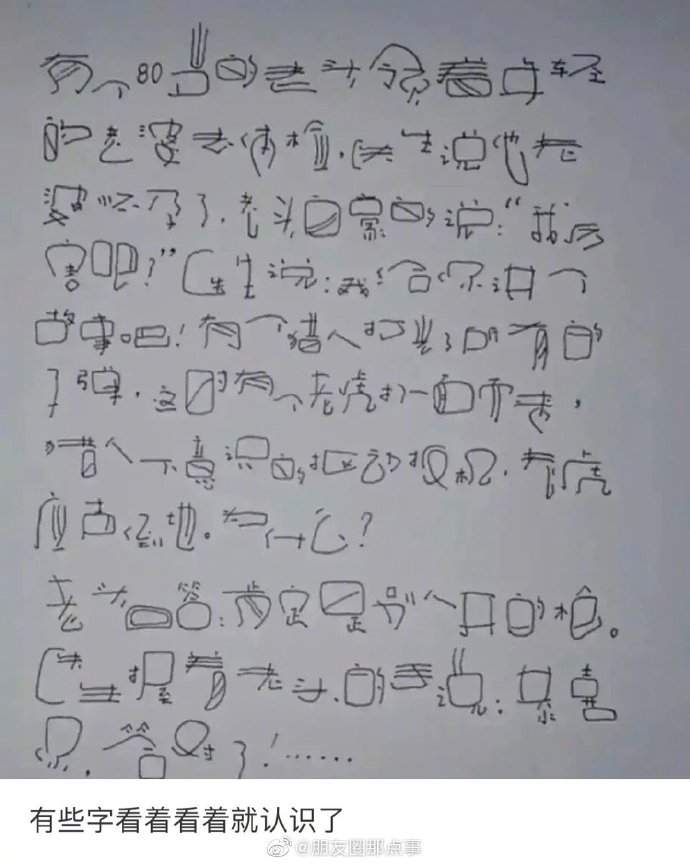 有个80岁的老头领着年轻
的老婆去体检,医生说他老
婆怀孕了,老头自豪的说:“我厉
害吧?”医生说:我给你讲个
故事吧!有个猎人打光了所有的
子弹,这时有个老虎扑面而来,
猎人下意识的抠动扳机,老虎
应声倒地。为什么?
老头回答:肯定是别人开的枪。
医生握着老头的手说:
答对了!……
有些字看着看着就认识了
@朋友圈那点事